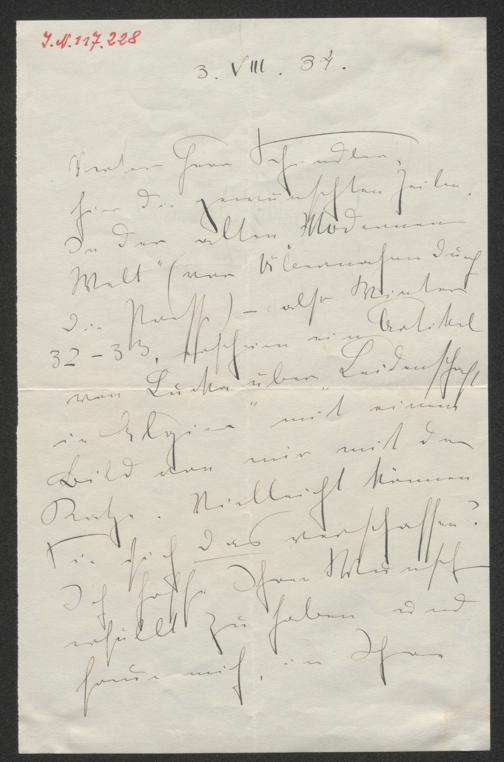 J.N. 117.228
3. VIII. 34.
Herr Schindler,
hier die gewünschten Zeilen.
In der alten "Modernen
Welt" (vor Übernahme durch
die ) – also Winter
32–33, erschien ein Artikel
von Lucka über "Leidenschaft
in " mit einem
Bild von mir mit der
Katze. Vielleicht können
Sie sich das verschaffen?
Ich hoffe Ihren Wunsch
erfüllt zu haben und
freue mich, in Ihrer